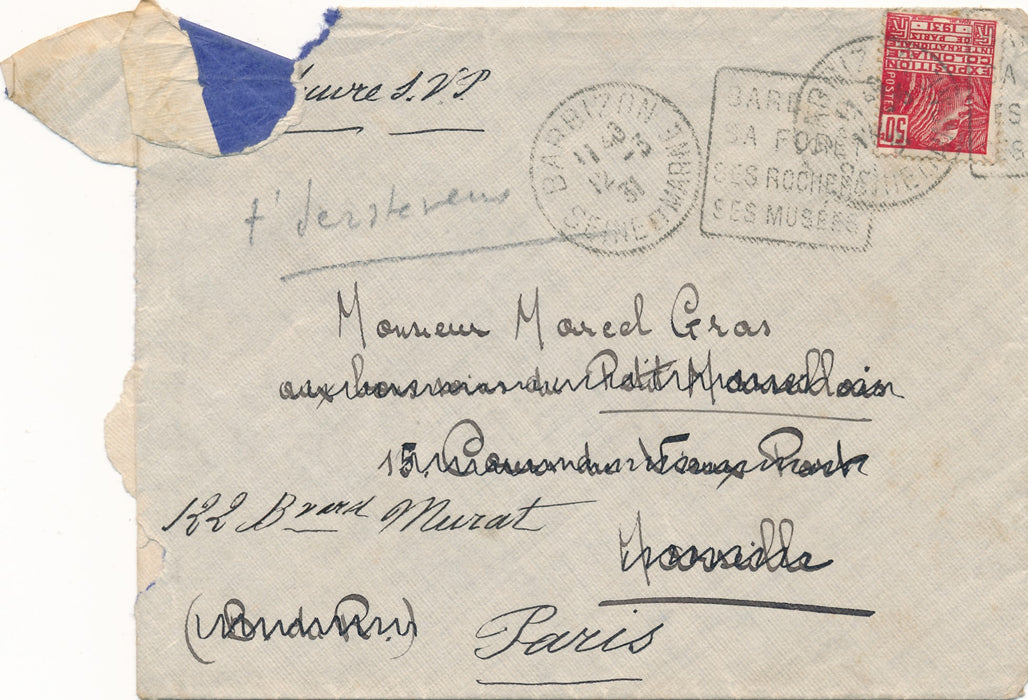 suivre S.V.P.
t'Serstevens
BARBIZON
11 3
12 31
SEINE ET MARNE
BARB
SA FORÊT
SES ROCHERS
SES MUSÉES
EXPOSITION
COLONIALE
INTERNATIONALE
DE PARIS
1931
POSTES
50
Monsieur Marcel Gras
aux bons soins du Petit Marseillais
15, Cours du Vieux Port
122 Bvard Murat
Marseille
(Bdu R.)
Paris